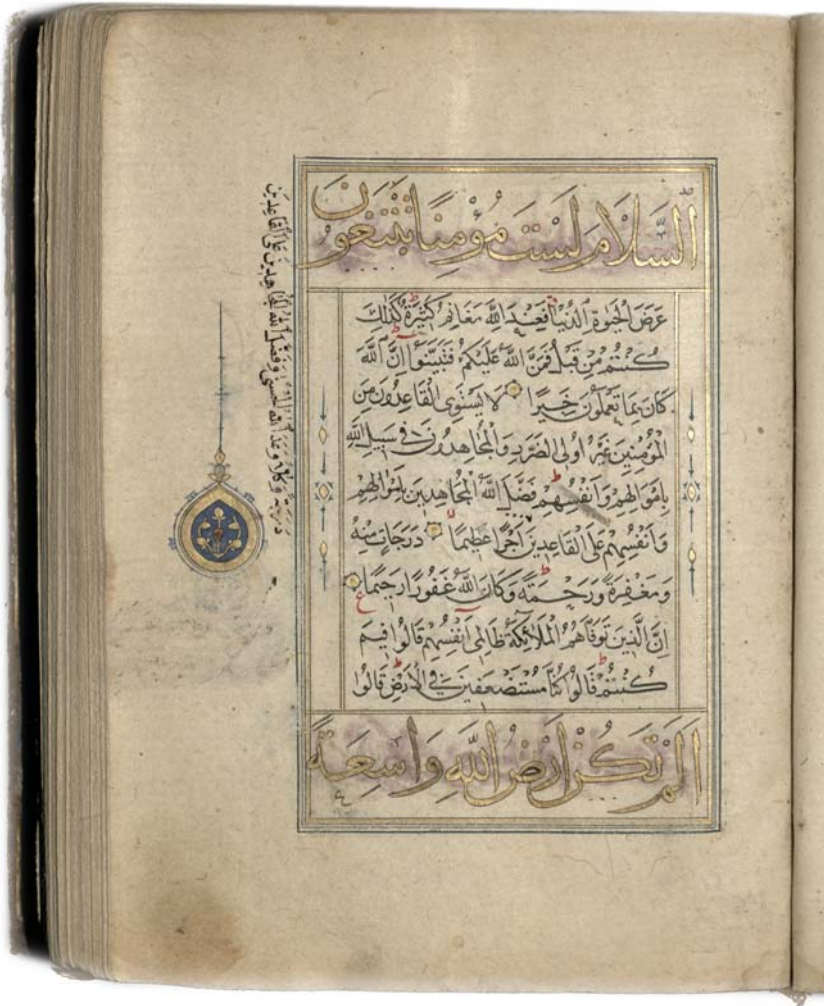 السَّلَامَ لَسْتَ مُؤْمِنًا تَبْتَغُونَ
عَرَضَ الْحَيٰوةِ الدُّنْيَا فَعِنْدَ اللَّهِ مَغَانِمُ كَثِيرَةٌ كَذَلِكَ
كُنْتُمْ مِنْ قَبْلُ فَمَنَّ اللَّهُ عَلَيْكُمْ فَتَبَيَّنُوا اِنَّ اللَّهَ
كَانَ بِمَا تَعْمَلُونَ خَبِيرًا لَا يَسْتَوِي الْقَاعِدُونَ مِنَ
الْمُؤْمِنِينَ غَيْرُ اُولِي الضَّرَرِ وَالْمُجَاهِدُونَ فِي سَبِيلِ اللَّهِ
بِاَمْوَالِهِمْ وَاَنْفُسِهِمْ فَضَّلَ اللَّهُ الْمُجَاهِدِينَ بِاَمْوَالِهِمْ
وَاَنْفُسِهِمْ عَلَى الْقَاعِدِينَ اَجْرًا عَظِيمًا دَرَجَاتٍ مِنْهُ
وَمَغْفِرَةً وَرَحْمَةً وَكَانَ اللَّهُ غَفُورًا رَحِيمًا
اِنَّ الَّذِينَ تَوَفَّاهُمُ الْمَلَائِكَةُ ظَالِمِي اَنْفُسِهِمْ قَالُوا فِيمَ
كُنْتُمْ قَالُوا كُنَّا مُسْتَضْعَفِينَ فِي الْاَرْضِ قَالُوا
اَلَمْ تَكُنْ اَرْضُ اللَّهِ وَاسِعَةً
دَرَجَةً وَكُلًّا وَعَدَ اللَّهُ الْحُسْنَى وَفَضَّلَ اللَّهُ الْمُجَاهِدِينَ عَلَى الْقَاعِدِينَ